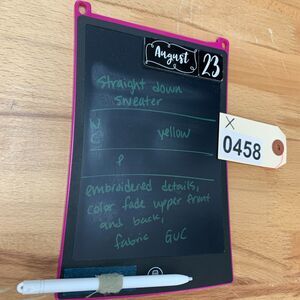 August 23
straight down
sweater
yellow
P
X
0458
embroidered details,
color fade upper front
and back,
fabric GUC